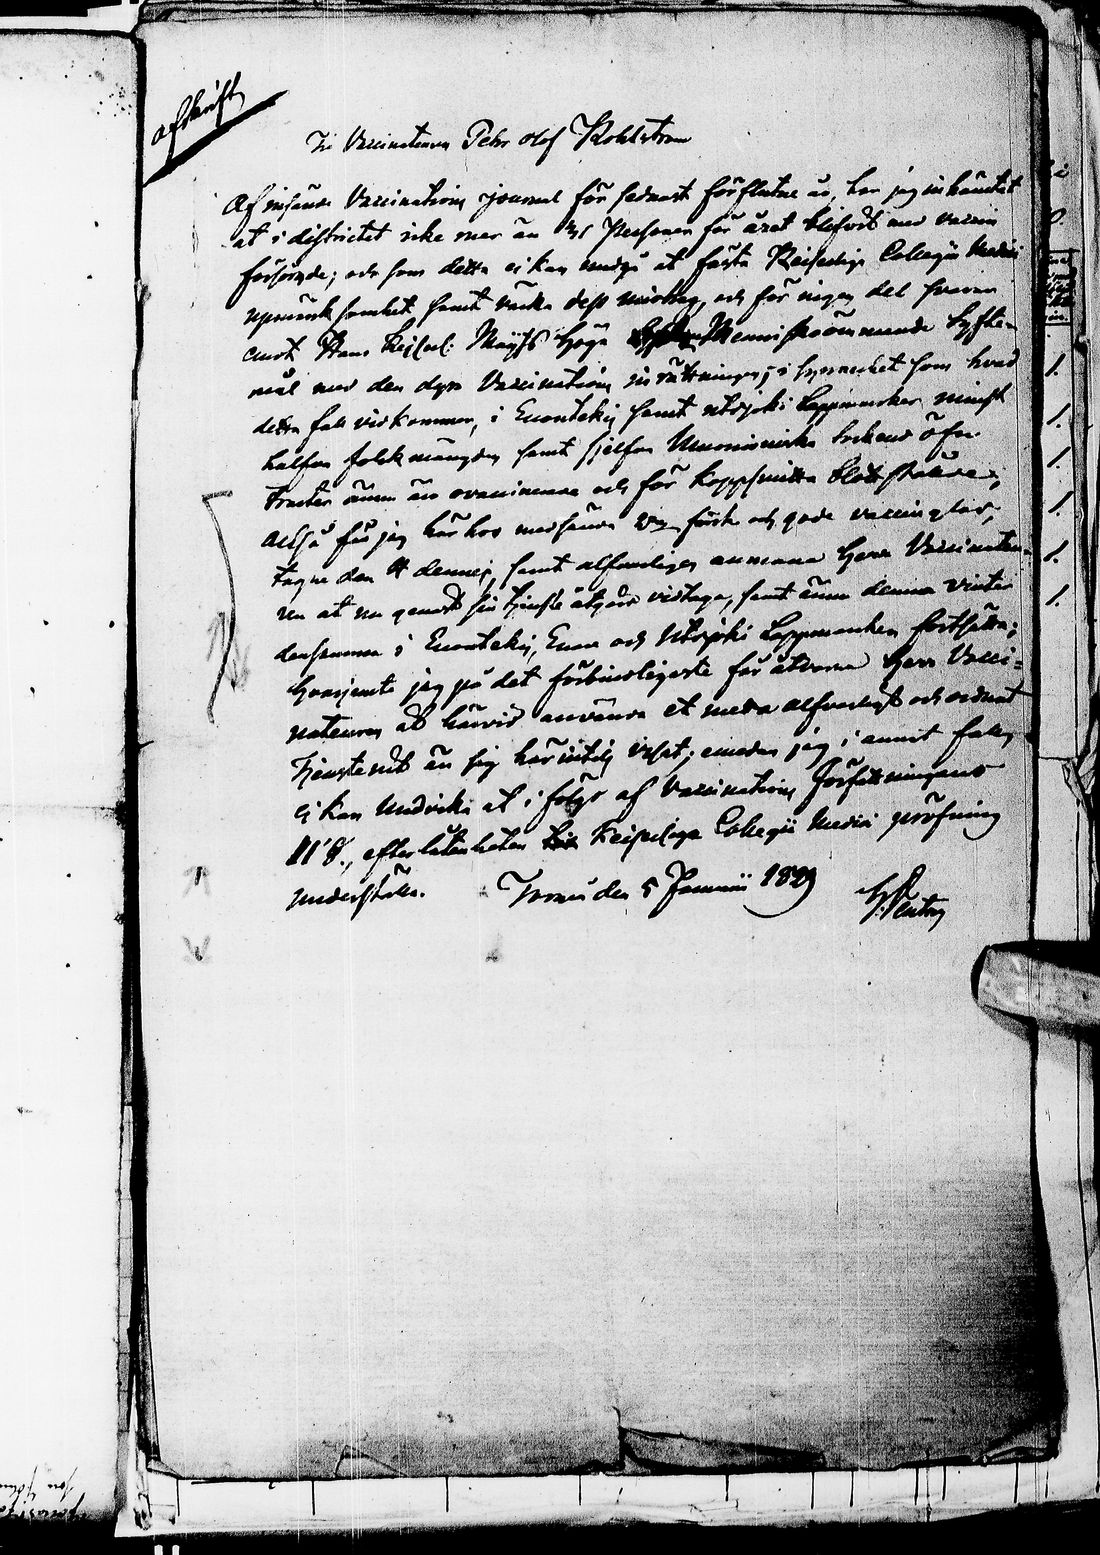 afskrift
Til Vaccinateuren Pehr Olof Kohlström
Af insände Vaccinations journal för sednast förflutne år, har jag inhämtat
at i districtet icke mer än 31 Personer för året blifvit med vaccin
försörgde; och som detta ej kan undgå at fästa Kejserliga Collegii Medici
upmärksamhet samt väcka dess misshag, och för ingen del svarar
emot Hans Kejserl: Maijts höga Menniskoömmande Syfte-
mål med den dyra Vaccinations inrättningen; i synnerhet som hvad
detta fall vidkommer, i Enontekis samt Utsjoki Lappmarker minst
halfva folkmängden samt sjelfva Muonioniska Sockens öfre
tracter ännu äro ovaccinerade och för koppsmitta blottstälde;
Altså får jag härhos medsända färsk och gode vaccinglas,
tagne den 4 dennes, samt alfvarligen anmana Herr Vaccinateu-
ren at nu genast sin tjenste åtgärd vidtaga, samt ännu denna vinter
densamma i Enontekis, Enare och Utsjoki Lappmarker fortsätta;
hvarjemte jag på det förbindligaste får åtvarna Herr Vacci-
nateuren at härvid använda et mera alfvarligt och ordnat
Tjenstenit än sig härintils visat; emedan jag i annat fall
ej kan undvika at i följe af Vaccinations Författningens
11 §., efterlåtenheten Kejserliga Collegii Medici pröfning
underställa. Torneå den 5 Januarii 1829